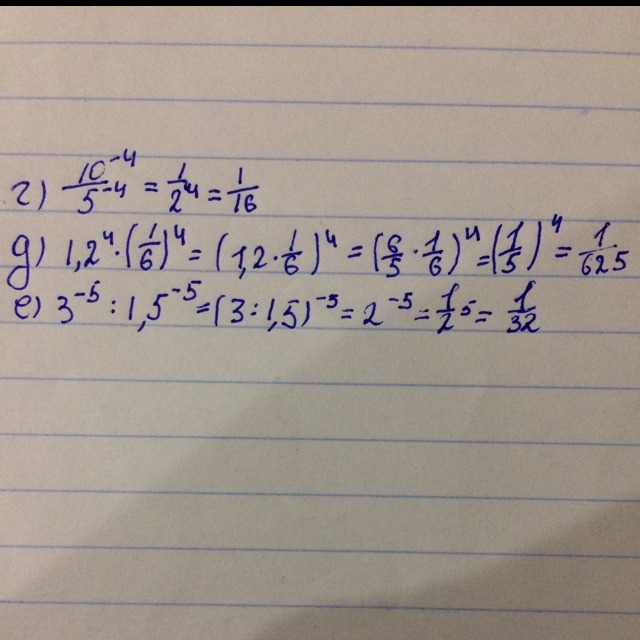 г) 10⁻⁴/5⁻⁴ = 1/2⁴ = 1/16
д) 1,2⁴ · (1/6)⁴ = (1,2 · 1/6)⁴ = (6/5 · 1/6)⁴ = (1/5)⁴ = 1/625
е) 3⁻⁵ : 1,5⁻⁵ = (3 : 1,5)⁻⁵ = 2⁻⁵ = 1/2⁵ = 1/32